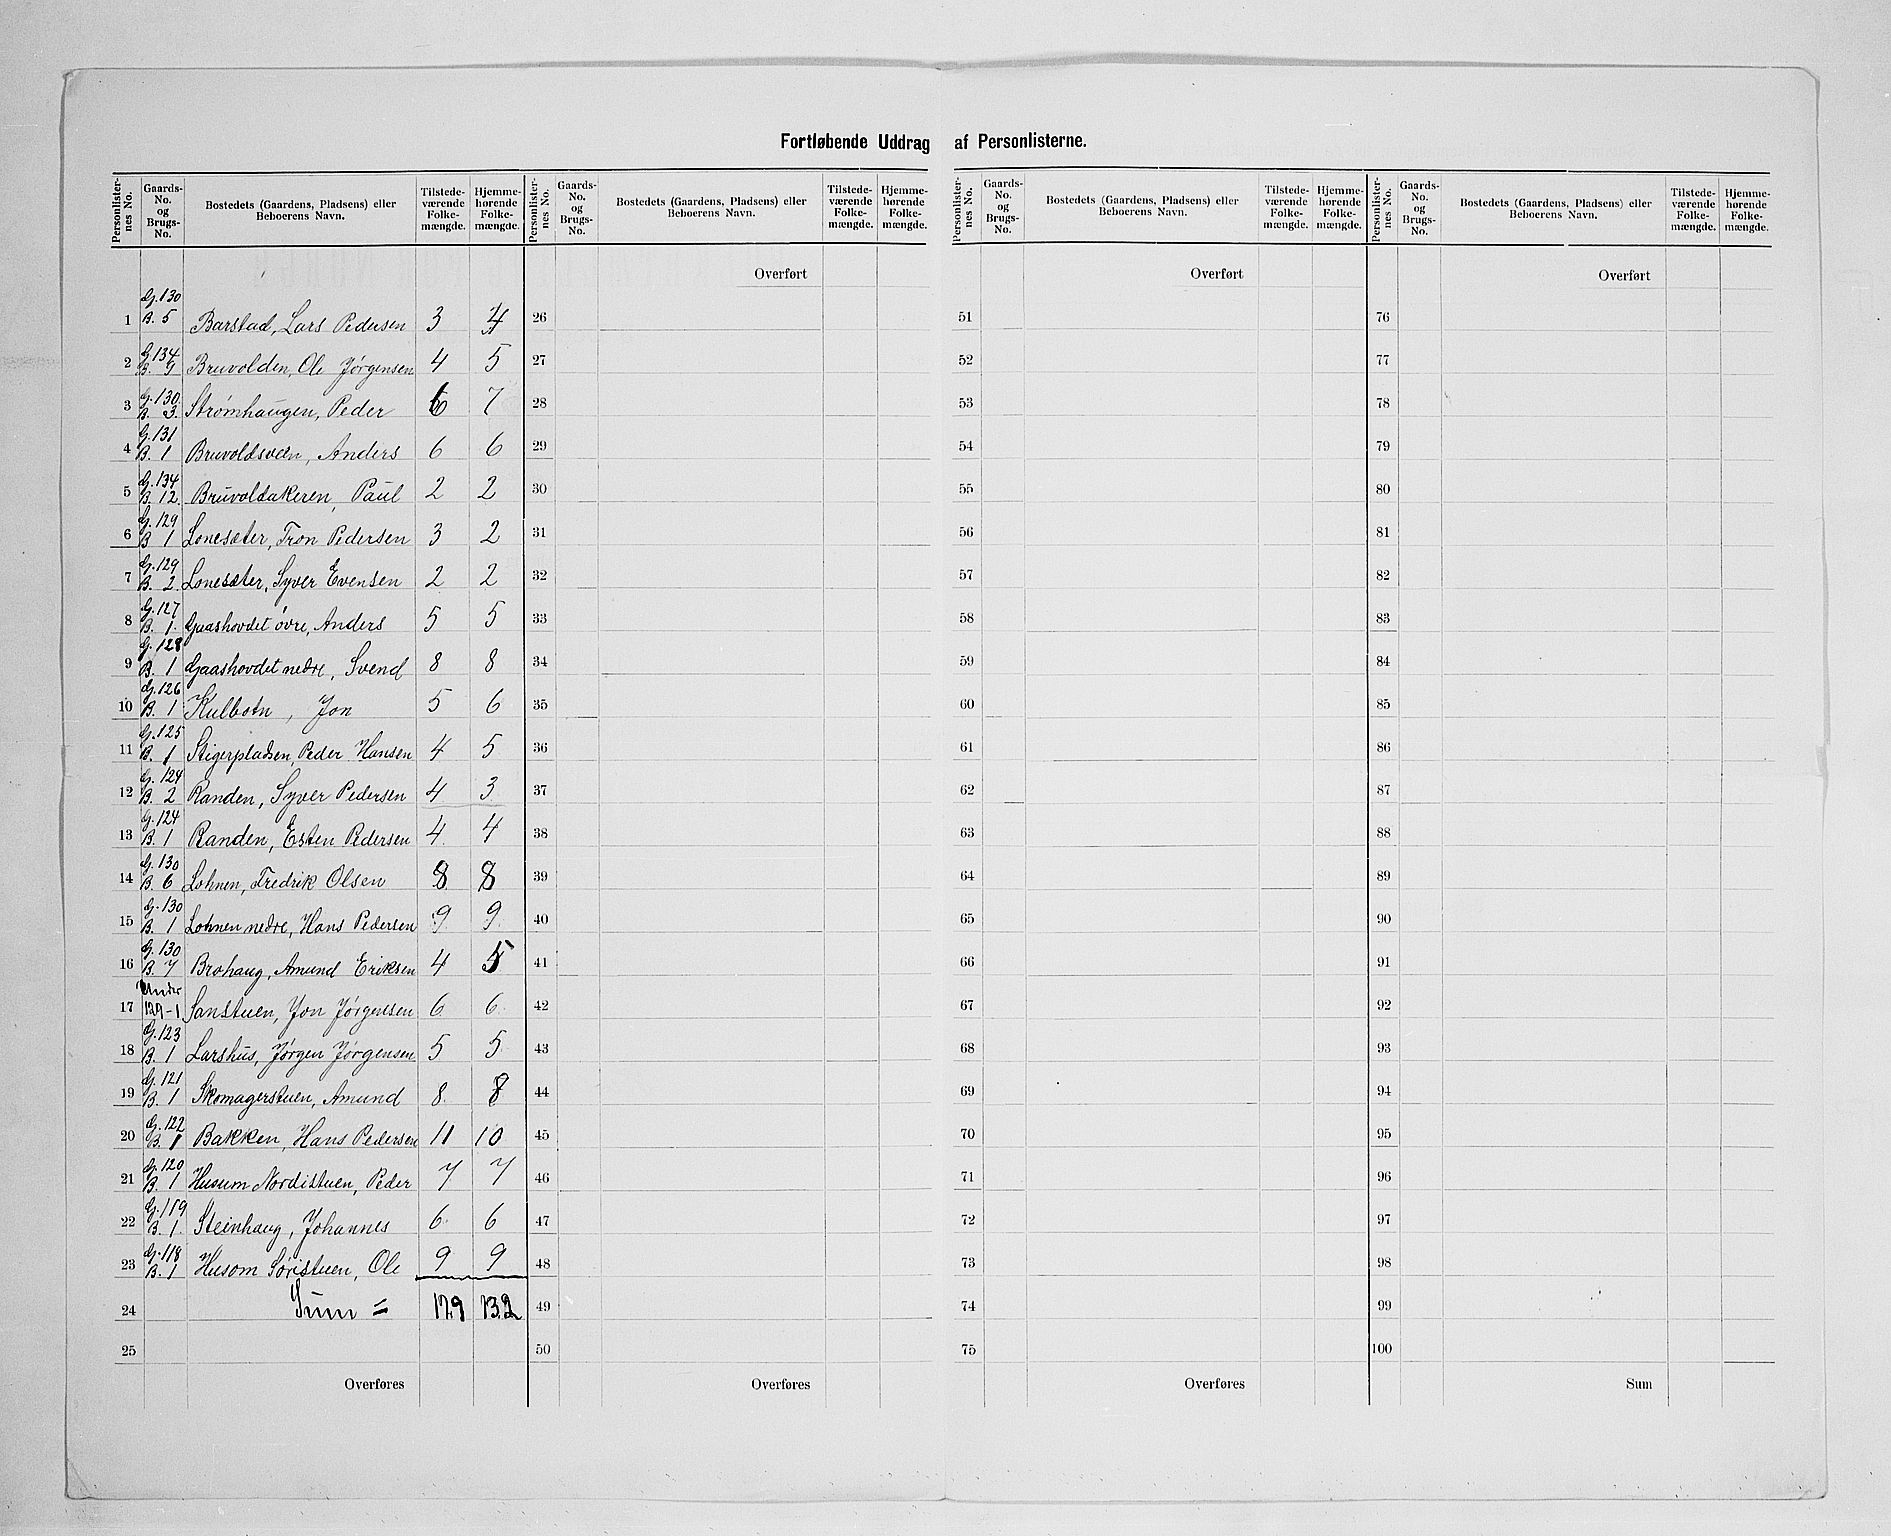 Fortløbende Uddrag af Personlisterne.
Personlister-nes No. | Gaards-No. og Brugs-No. | Bostedets (Gaardens, Pladsens) eller Beboerens Navn. | Tilstede-værende Folke-mængde. | Hjemme-hørende Folke-mængde. | Personlister-nes No. | Gaards-No. og Brugs-No. | Bostedets (Gaardens, Pladsens) eller Beboerens Navn. | Tilstede-værende Folke-mængde. | Hjemme-hørende Folke-mængde. | Personlister-nes No. | Gaards-No. og Brugs-No. | Bostedets (Gaardens, Pladsens) eller Beboerens Navn. | Tilstede-værende Folke-mængde. | Hjemme-hørende Folke-mængde. | Personlister-nes No. | Gaards-No. og Brugs-No. | Bostedets (Gaardens, Pladsens) eller Beboerens Navn. | Tilstede-værende Folke-mængde. | Hjemme-hørende Folke-mængde.
Overført Overført Overført
1 G. 130 B. 5 Barstad, Lars Pedersen 3 4 26 51 76
2 G. 134 B. 9 Bruvolden, Ole Jørgensen 4 5 27 52 77
3 G. 130 B. 3 Strømhaugen, Peder 6 7 28 53 78
4 G. 131 B. 1 Bruvoldsveen, Anders 6 6 29 54 79
5 G. 134 B. 12 Bruvoldakeren, Paul 2 2 30 55 80
6 G. 129 B 1 Lonesæter, Tron Pedersen 3 2 31 56 81
7 G. 129 B. 2 Lonesæter, Syver Evensen 2 2 32 57 82
8 G. 127 B. 1 Gaashovdet øvre, Anders 5 5 33 58 83
9 G. 128 B. 1 Gaashovdet nedre, Svend 8 8 34 59 84
10 G. 126 B. 1 Kulbotn, Jon 5 6 35 60 85
11 G. 125 B. 1 Stigerpladsen, Peder Hansen 4 5 36 61 86
12 G. 124 B. 2 Randen, Syver Pedersen 4 3 37 62 87
13 G. 124 B. 1 Randen, Esten Pedersen 4 4 38 63 88
14 G. 130 B. 6 Lohnen, Fredrik Olsen 8 8 39 64 89
15 G. 130 B. 1 Lohnen nedre, Hans Pedersen 9 9 40 65 90
16 G. 130 B. 7 Brohaug, Amund Eriksen 4 5 41 66 91
17 Under 129-1 Sanstuen, Jon Jørgensen 6 6 42 67 92
18 G. 123 B. 1 Larshus, Jørgen Jørgensen 5 5 43 68 93
19 G. 121 B. 1 Skomagerstuen, Amund 8 8 44 69 94
20 G. 122 B. 1 Bakken, Hans Pedersen 11 10 45 70 95
21 G. 120 B. 1 Husum Nordistuen, Peder 7 7 46 71 96
22 G. 119 B. 1 Steinhaug, Johannes 6 6 47 72 97
23 G. 118 B. 1 Husom Søristuen, Ole 9 9 48 73 98
24 Sum = 129 132 49 74 99
25 50 75 100
Overføres Overføres Overføres Sum